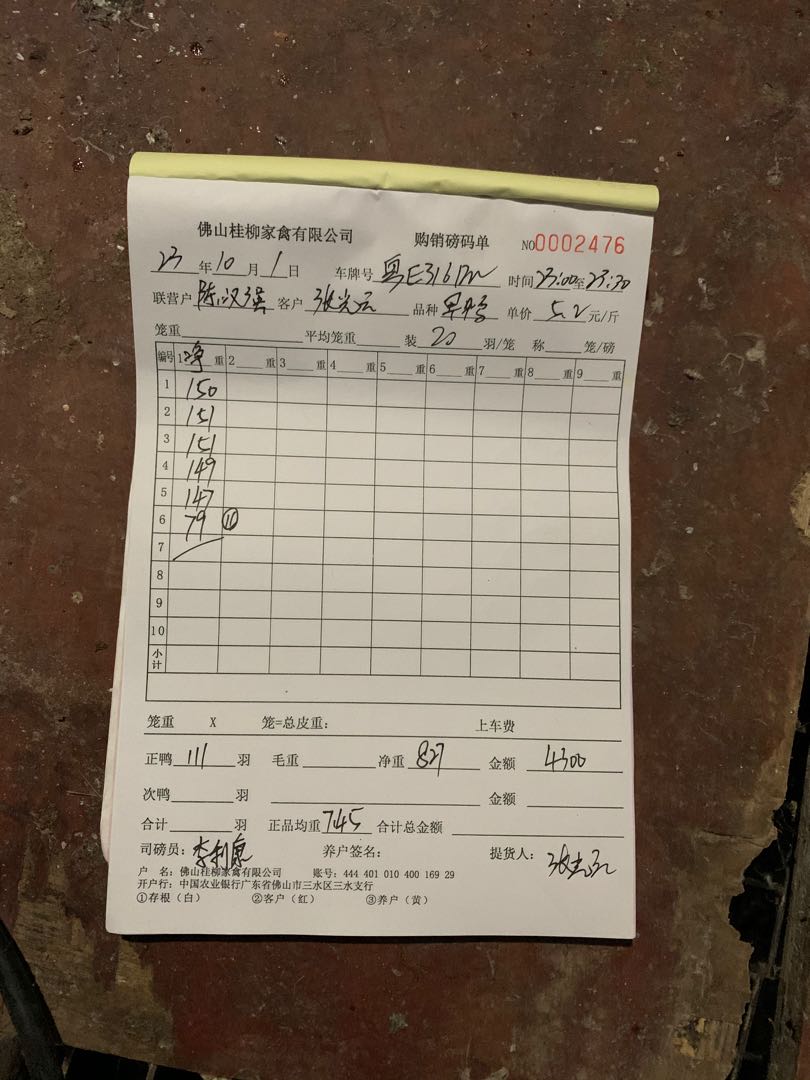 佛山桂柳家禽有限公司 购销磅码单 NO0002476
23年10月1日 车牌号 粤E316 时间23:00至23:30
联营户 陈汉强 客户 张 品种 单价 5.2元/斤
笼重 平均笼重 装 20 羽/笼 称 笼/磅
编号 1 净 重 2 重 3 重 4 重 5 重 6 重 7 重 8 重 9 重
1 150
2 151
3 151
4 149
5 147
6 79 ⑪
7
8
9
10
小计
笼重 X 笼=总皮重: 上车费
正鸭 111 羽 毛重 净重 827 金额 4300
次鸭 羽 金额
合计 羽 正品均重 745 合计总金额
司磅员: 李利康 养户签名: 提货人: 张
户 名:佛山桂柳家禽有限公司 账号:444 401 010 400 169 29
开户行:中国农业银行广东省佛山市三水区三水支行
①存根(白) ②客户(红) ③养户(黄)